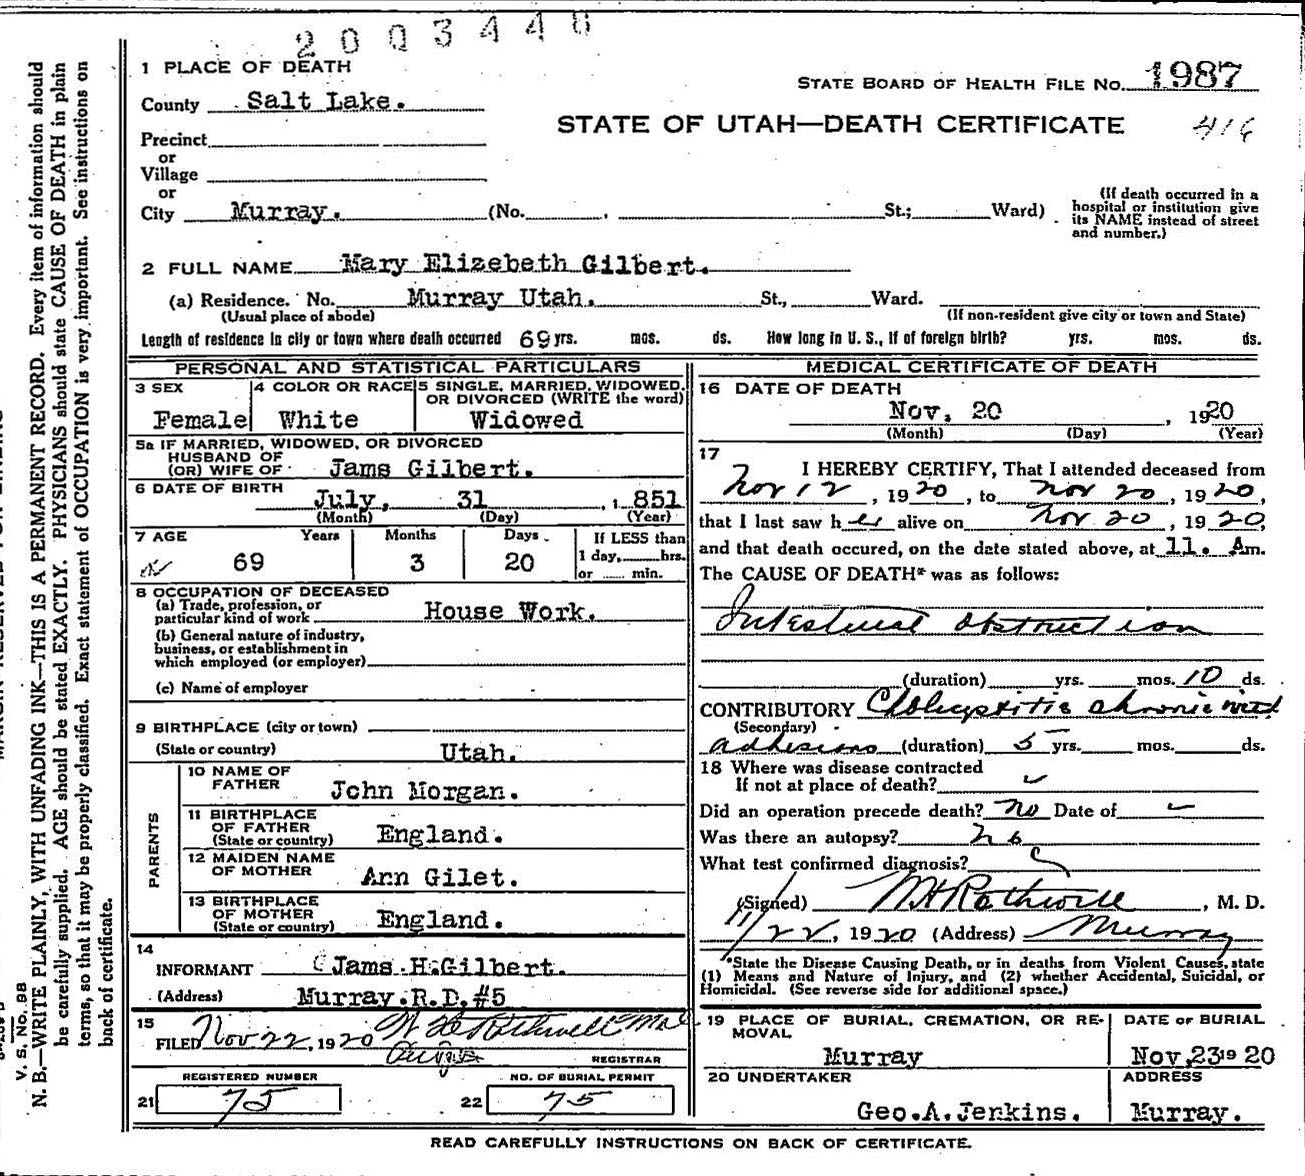 2003448
1 PLACE OF DEATH
STATE BOARD OF HEALTH FILE No. 1987
County Salt Lake.
STATE OF UTAH—DEATH CERTIFICATE
416
Precinct
or
Village
or
City Murray. (No. , St.; Ward)
(If death occurred in a
hospital or institution give
its NAME instead of street
and number.)
2 FULL NAME Mary Elizebeth Gilbert.
(a) Residence. No. Murray Utah. St., Ward.
(Usual place of abode) (If non-resident give city or town and State)
Length of residence in city or town where death occurred 69 yrs. mos. ds. How long in U. S., if of foreign birth? yrs. mos. ds.
PERSONAL AND STATISTICAL PARTICULARS
3 SEX
Female
4 COLOR OR RACE
White
5 SINGLE, MARRIED, WIDOWED,
OR DIVORCED (WRITE the word)
Widowed
5a IF MARRIED, WIDOWED, OR DIVORCED
HUSBAND OF
(OR) WIFE OF Jams Gilbert.
6 DATE OF BIRTH
July, 31 , 1 851
(Month) (Day) (Year)
7 AGE Years Months Days If LESS than
1 day, hrs.
or min.
69 3 20
8 OCCUPATION OF DECEASED
(a) Trade, profession, or
particular kind of work House Work.
(b) General nature of industry,
business, or establishment in
which employed (or employer)
(c) Name of employer
9 BIRTHPLACE (city or town)
(State or country) Utah.
PARENTS
10 NAME OF
FATHER John Morgan.
11 BIRTHPLACE
OF FATHER
(State or country) England.
12 MAIDEN NAME
OF MOTHER Ann Gilet.
13 BIRTHPLACE
OF MOTHER
(State or country) England.
14
INFORMANT Jams H Gilbert.
(Address) Murray.R.D.#5
15
FILED Nov 22, 1920 W H Rothwell MD
REGISTRAR
REGISTERED NUMBER
21 75
NO. OF BURIAL PERMIT
22 75
MEDICAL CERTIFICATE OF DEATH
16 DATE OF DEATH
Nov. 20 , 1920
(Month) (Day) (Year)
17
I HEREBY CERTIFY, That I attended deceased from
Nov 12, 1920, to Nov 20, 1920,
that I last saw her alive on Nov 20, 1920,
and that death occured, on the date stated above, at 11. Am.
The CAUSE OF DEATH* was as follows:
Intestinal obstruction
(duration) yrs. mos. 10 ds.
CONTRIBUTORY Cholecystitis chronic with
(Secondary)
adhesions (duration) 5 yrs. mos. ds.
18 Where was disease contracted
If not at place of death?
Did an operation precede death? No Date of
Was there an autopsy? No
What test confirmed diagnosis?
(Signed) W H Rothwell, M. D.
11/22, 1920 (Address) Murray
*State the Disease Causing Death, or in deaths from Violent Causes, state
(1) Means and Nature of Injury, and (2) whether Accidental, Suicidal, or
Homicidal. (See reverse side for additional space.)
19 PLACE OF BURIAL, CREMATION, OR RE-
MOVAL
Murray
DATE OF BURIAL
Nov, 23 19 20
20 UNDERTAKER
Geo.A.Jenkins.
ADDRESS
Murray.
READ CAREFULLY INSTRUCTIONS ON BACK OF CERTIFICATE.
V. S. No. 98
N. B.—WRITE PLAINLY, WITH UNFADING INK—THIS IS A PERMANENT RECORD. Every item of information should
be carefully supplied. AGE should be stated EXACTLY. PHYSICIANS should state CAUSE OF DEATH in plain
terms, so that it may be properly classified. Exact statement of OCCUPATION is very important. See instructions on
back of certificate.